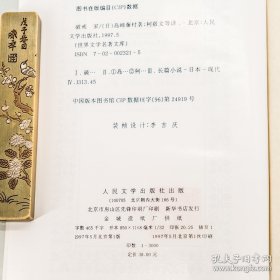 图书在版编目(CIP)数据
破戒 家/(日)岛崎藤村著;柯毅文等译.-北京:人民
文学出版社,1997.5
(世界文学名著文库)
ISBN 7-02-002322-5
Ⅰ.破… Ⅱ.①岛…②柯… Ⅲ.长篇小说-日本-现代
Ⅳ.I313.45
中国版本图书馆CIP数据核字(96)第24919号
装帧设计:李吉庆
人民文学出版社出版
(100705 北京朝内大街166号)
北京市房山区先锋印刷厂印刷 新华书店发行
字数465千字 开本850×1168毫米1/32 印张20.25 插页1
1997年5月北京第1版 1997年5月北京第1次印刷
印数1-3000
定价28.00元